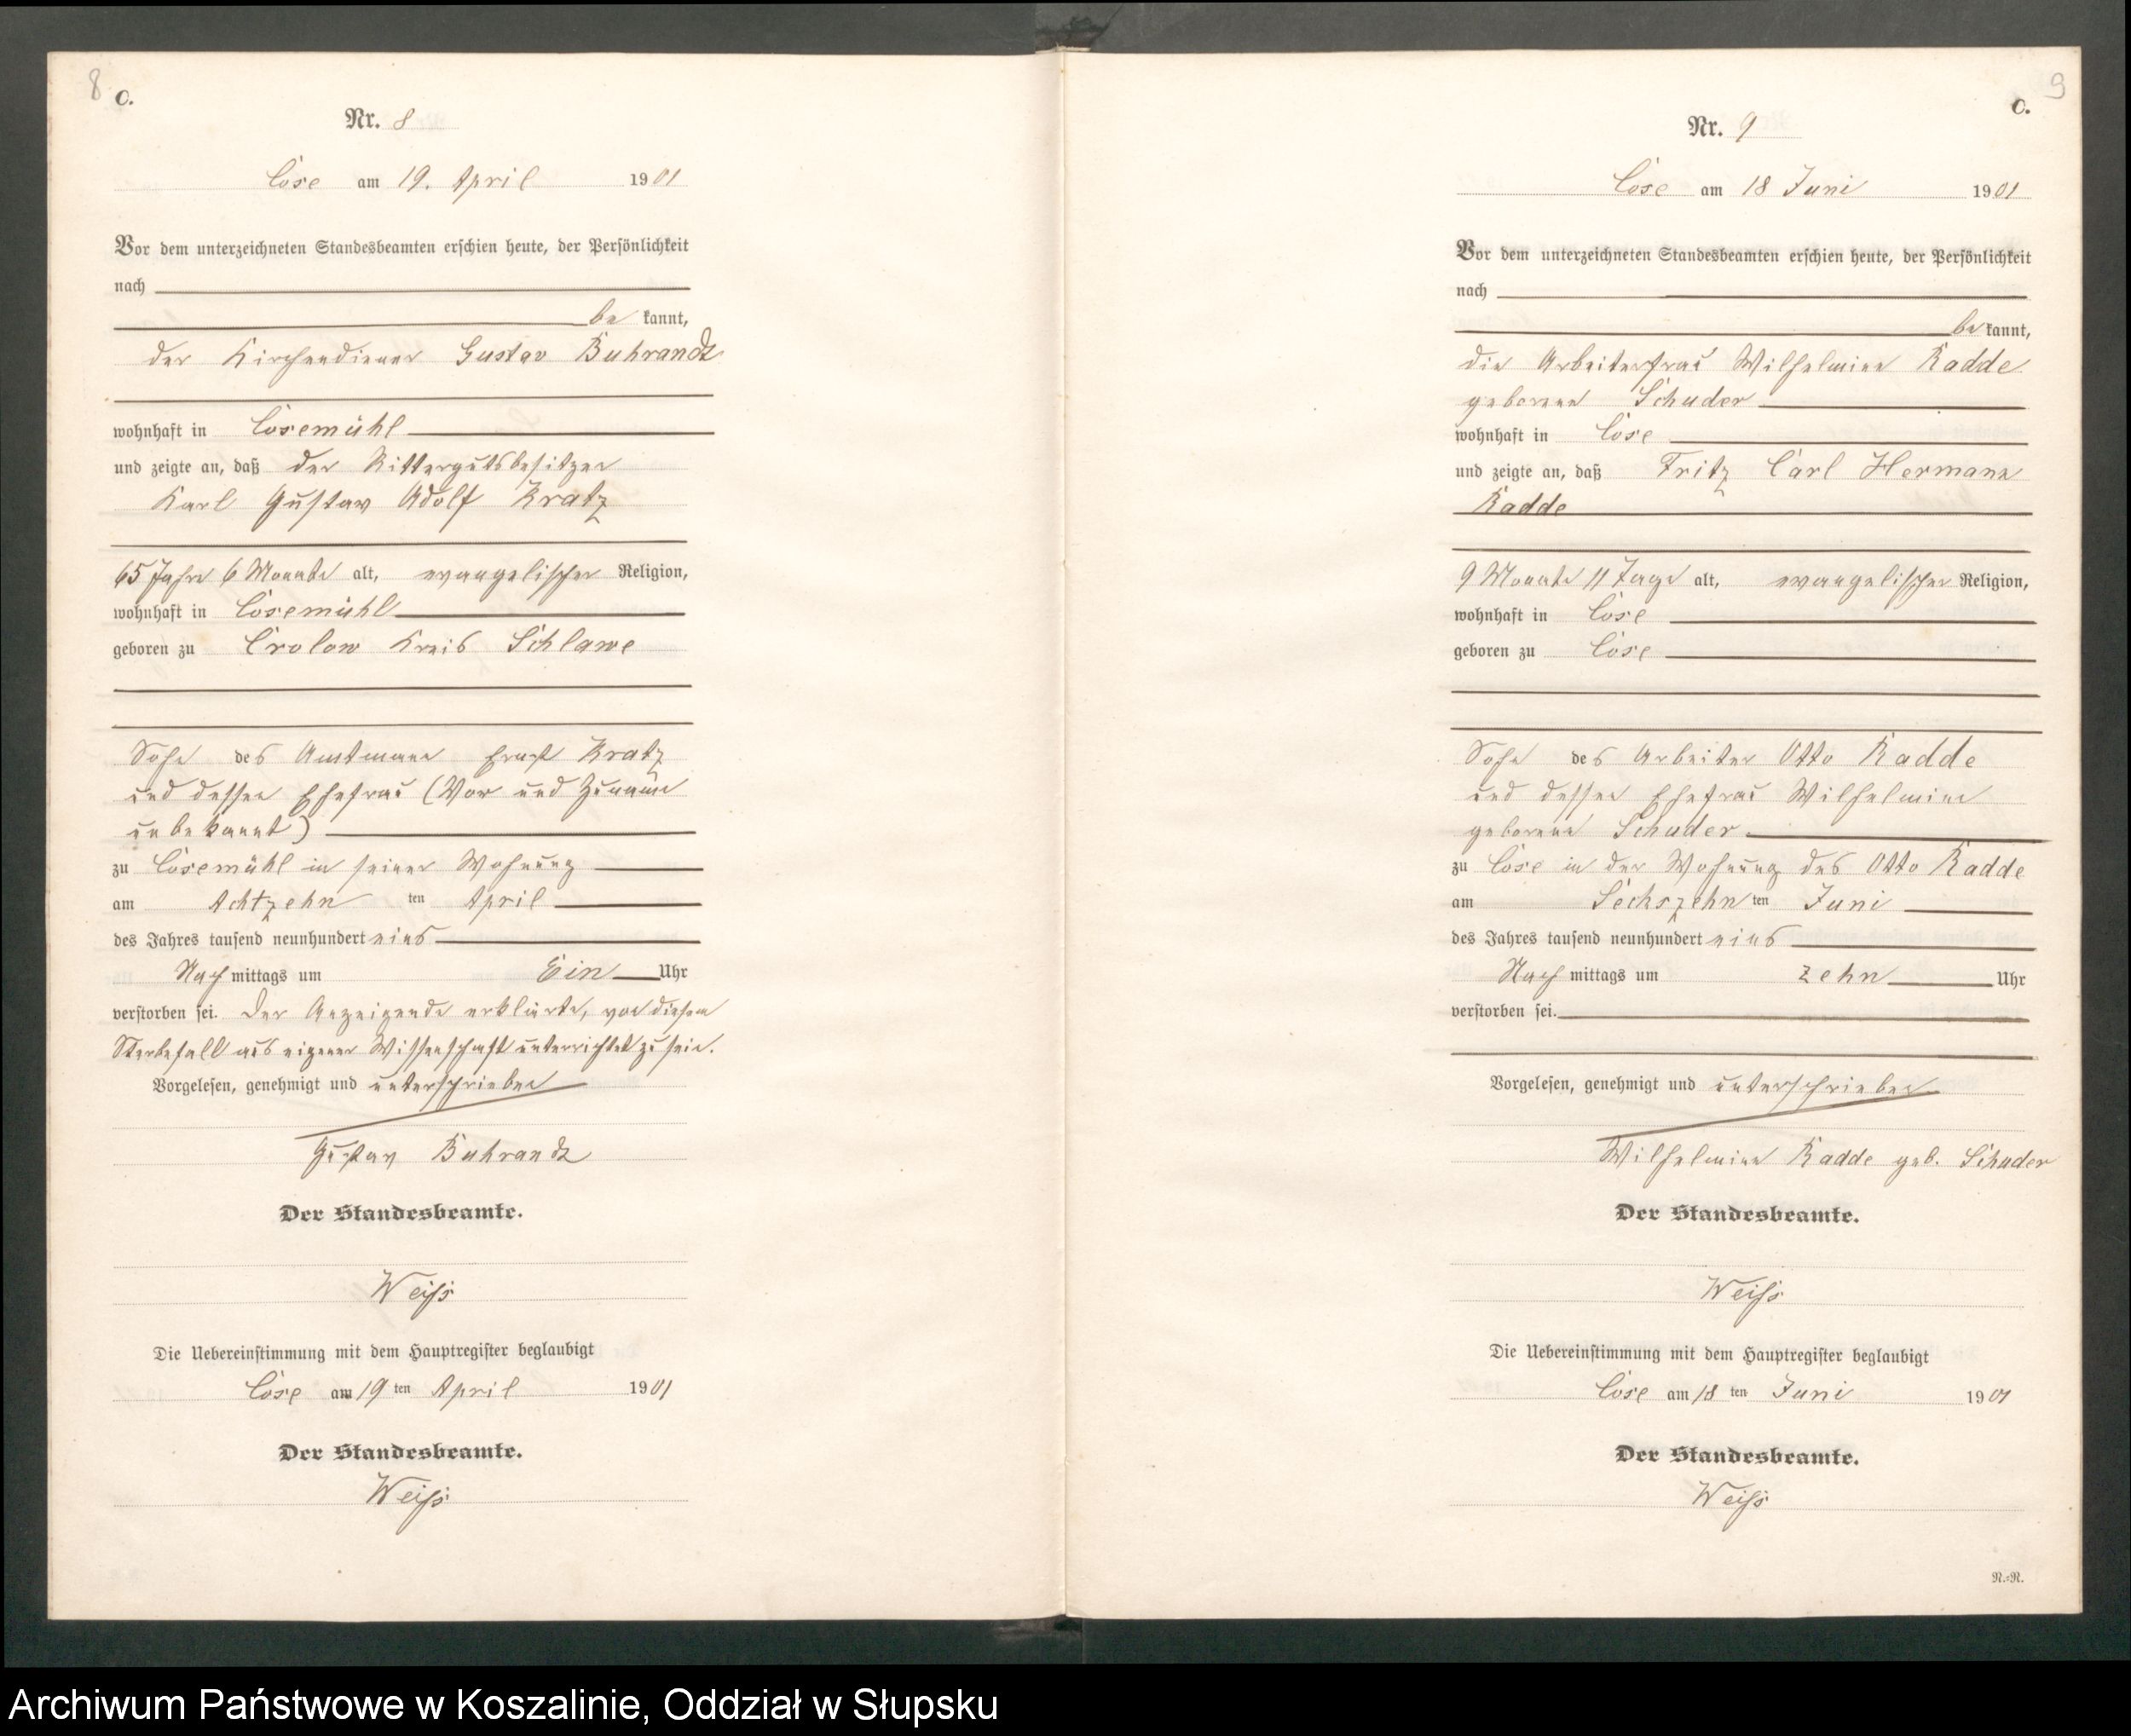 8
C.
Nr. 8
Cose am 19. April 1901
Vor dem unterzeichneten Standesbeamten erschien heute, der Persönlichkeit
nach
be kannt,
der Kirchendiener Gustav Buhrandt
wohnhaft in Cosemühl
und zeigte an, daß der Rittergutsbesitzer
Karl Gustav Adolf Kratz
65 Jahre 6 Monate alt, evangelischer Religion,
wohnhaft in Cosemühl
geboren zu Crolow Kreis Schlawe
Sohn des Amtmann Ernst Kratz
und dessen Ehefrau (Vor und Zuname
unbekannt)
zu Cosemühl in seiner Wohnung
am Achtzehn ten April
des Jahres tausend neunhundert eins
Nach mittags um Ein Uhr
verstorben sei. Der Anzeigende erklärte, von diesem
Sterbefall aus eigener Wissenschaft unterrichtet zu sein.
Vorgelesen, genehmigt und unterschrieben
Gustav Buhrandt
Der Standesbeamte.
Weiß
Die Uebereinstimmung mit dem Hauptregister beglaubigt
Cose am 19 ten April 1901
Der Standesbeamte.
Weiß
9
C.
Nr. 9
Cose am 18 Juni 1901
Vor dem unterzeichneten Standesbeamten erschien heute, der Persönlichkeit
nach
be kannt,
die Arbeiterfrau Wilhelmine Radde
geborene Schuder
wohnhaft in Cose
und zeigte an, daß Fritz Carl Hermann
Radde
9 Monate 11 Tage alt, evangelischer Religion,
wohnhaft in Cose
geboren zu Cose
Sohn des Arbeiter Otto Radde
und dessen Ehefrau Wilhelmine
geborene Schuder
zu Cose in der Wohnung des Otto Radde
am Sechszehn ten Juni
des Jahres tausend neunhundert eins
Nach mittags um zehn Uhr
verstorben sei.
Vorgelesen, genehmigt und unterschrieben
Wilhelmine Radde geb. Schuder
Der Standesbeamte.
Weiß
Die Uebereinstimmung mit dem Hauptregister beglaubigt
Cose am 18 ten Juni 1901
Der Standesbeamte.
Weiß
N.-N.
Archiwum Państwowe w Koszalinie, Oddział w Słupsku